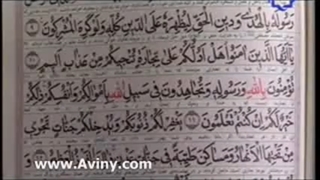 رَسُولَهُ بِالْهُدَىٰ وَدِينِ الْحَقِّ لِيُظْهِرَهُ عَلَى الدِّينِ كُلِّهِ وَلَوْ كَرِهَ الْمُشْرِكُونَ ﴿۹﴾
يَا أَيُّهَا الَّذِينَ آمَنُوا هَلْ أَدُلُّكُمْ عَلَىٰ تِجَارَةٍ تُنْجِيكُمْ مِنْ عَذَابٍ أَلِيمٍ ﴿۱۰﴾
تُؤْمِنُونَ بِاللَّهِ وَرَسُولِهِ وَتُجَاهِدُونَ فِي سَبِيلِ اللَّهِ بِأَمْوَالِكُمْ وَأَنْفُسِكُمْ ذَٰلِكُمْ
خَيْرٌ لَكُمْ إِنْ كُنْتُمْ تَعْلَمُونَ ﴿۱۱﴾ يَغْفِرْ لَكُمْ ذُنُوبَكُمْ وَيُدْخِلْكُمْ جَنَّاتٍ تَجْرِي
مِنْ تَحْتِهَا الْأَنْهَارُ وَمَسَاكِنَ طَيِّبَةً فِي جَنَّاتِ
www.Aviny.com www.Aviny.com